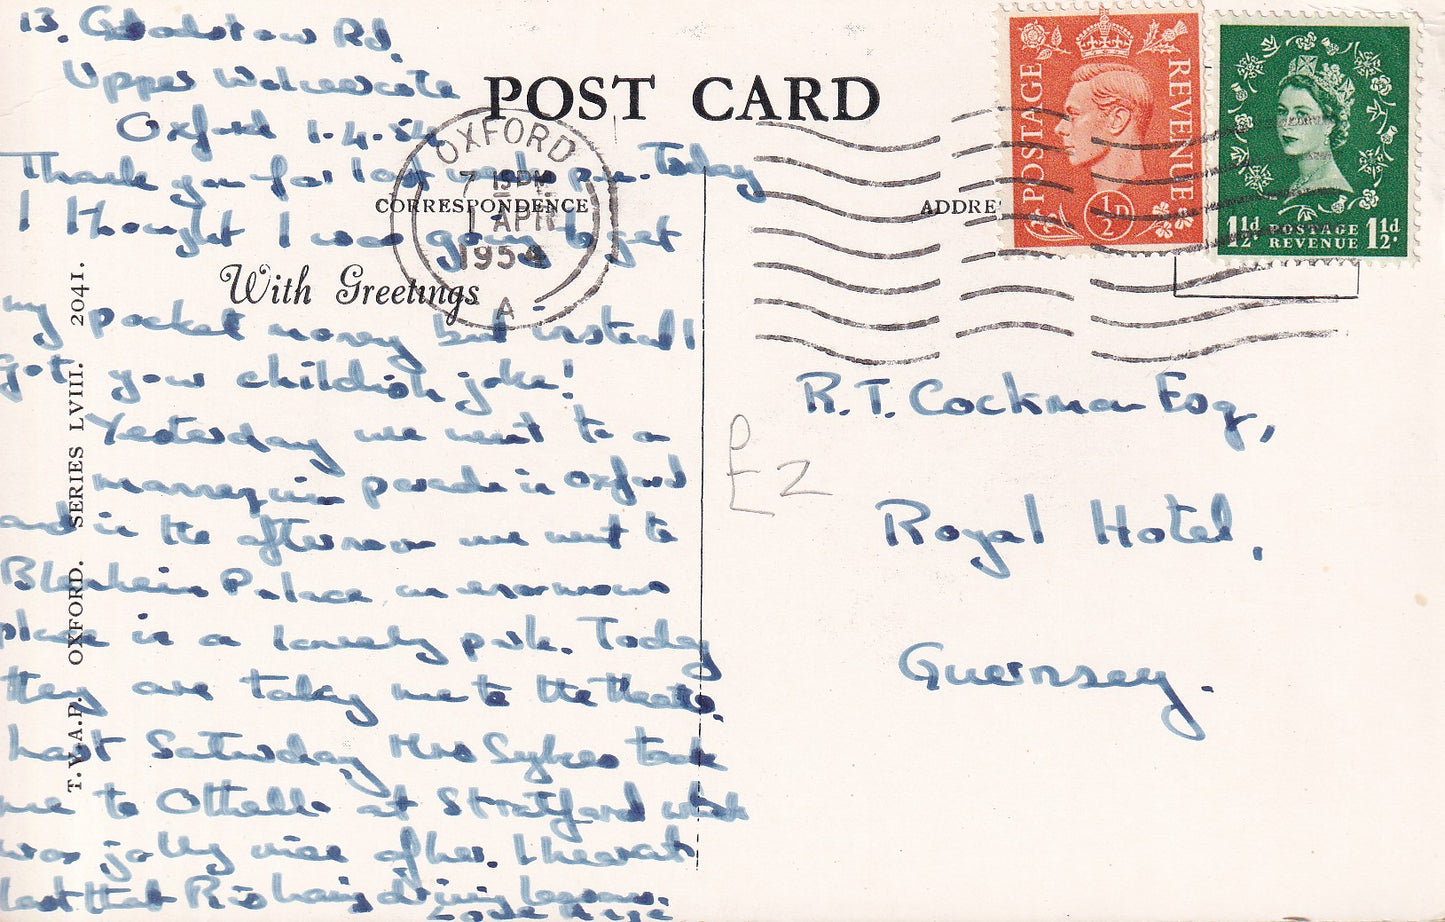 13. Godstow Rd.
Upper Wolvercote
Oxford 1.4.54
POST CARD
Thank you for last week's p.m. Today
CORRESPONDENCE
ADDRE
I thought I was going to get
With Greetings
my pocket money but instead I
got your childish joke!
Yesterday we went to a
mannequin parade in Oxford
and in the afternoon we went to
Blenheim Palace an enormous
place in a lovely park. Today
they are taking me to the theatre.
Last Saturday Mrs Sykes took
me to Othello at Stratford which
was jolly nice of her. I hear at
last that R is having driving lessons.
Love
T.V.A.P. OXFORD. SERIES LVIII. 2041.
OXFORD
7 15 PM
1 APR
1954
A
POSTAGE REVENUE
½D
1½d. POSTAGE 1½d.
REVENUE
R.T. Cockman Esq,
£2
Royal Hotel,
Guernsey.